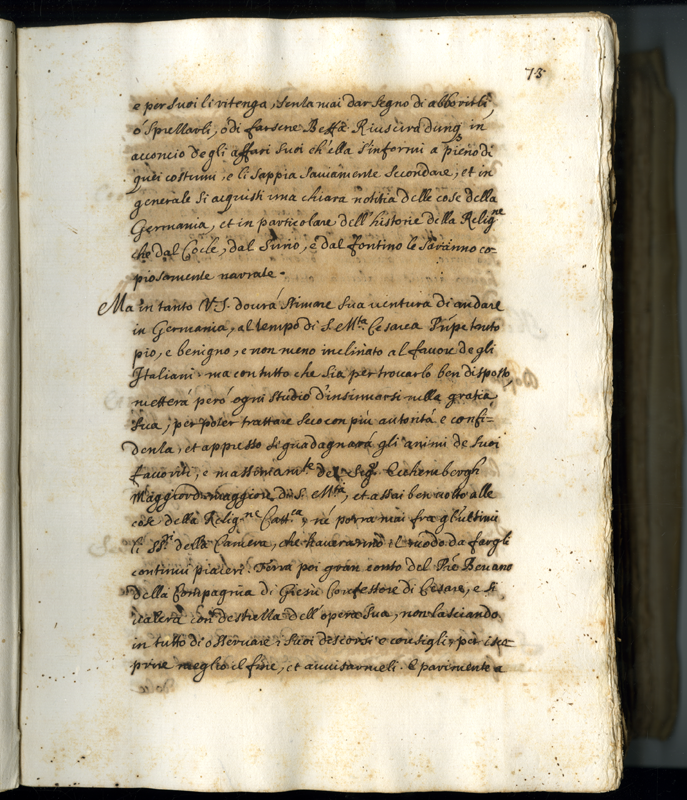 73
e per suoi li ritenga, senza mai dar segno di abborirli,
ó sprezzarli, ó di farsene Beffe Riuscirá dunq in
acconcio degli affari suoi ch'ella s'informi a pieno di
quei costumi, e li sappia sauiamente secondare, et in
generale si acquisti una chiara notitia delle cose della
Germania, et in particolare dell'historie della Relig.ne
che dal Cocle, dal Surio, e dal fontino le saranno co-
piosamente narrate.
Ma in tanto V.S. dourá stimare sua uentura di andare
in Germania, al tempo di S. M.ta Cesarea Prīpe tanto
pio, e benigno, e non meno inclinato al fauore degli
Italiani. ma con tutto che sia per trouarlo ben disposto,
metterá peró ogni studio d'insinuarsi nella gratia
sua, per poter trattare seco con piú autoritá e confi-
denza, et appresso si guadagnará gli animi de suoi
fauoriti, e massimam.te del Sig.r Echembergh
Maggiord. maggiore di S. M.tá, et assai ben uolto alle
cose della Relig.ne Catt.ca, né porrá mai fra gl'ultimi
li SS.ri della Camera, che haueranno il modo da fargli
continui piaceri. Terrá poi gran conto del P're Becano
della Compagnia di Giesú Confessore di Cesare, e si
ualerá con destrezza dell'opera sua, non lasciando
in tutto di osseruare i suoi discorsi e consigli, per isco-
prire meglio il fine, et auuisarmeli. E parimente a